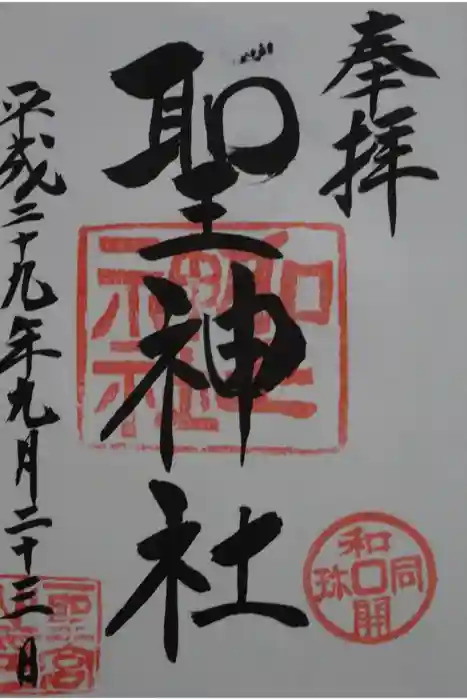 奉拝
聖神社
聖神社
和同開珎
平成二十九年九月二十三日
聖宮